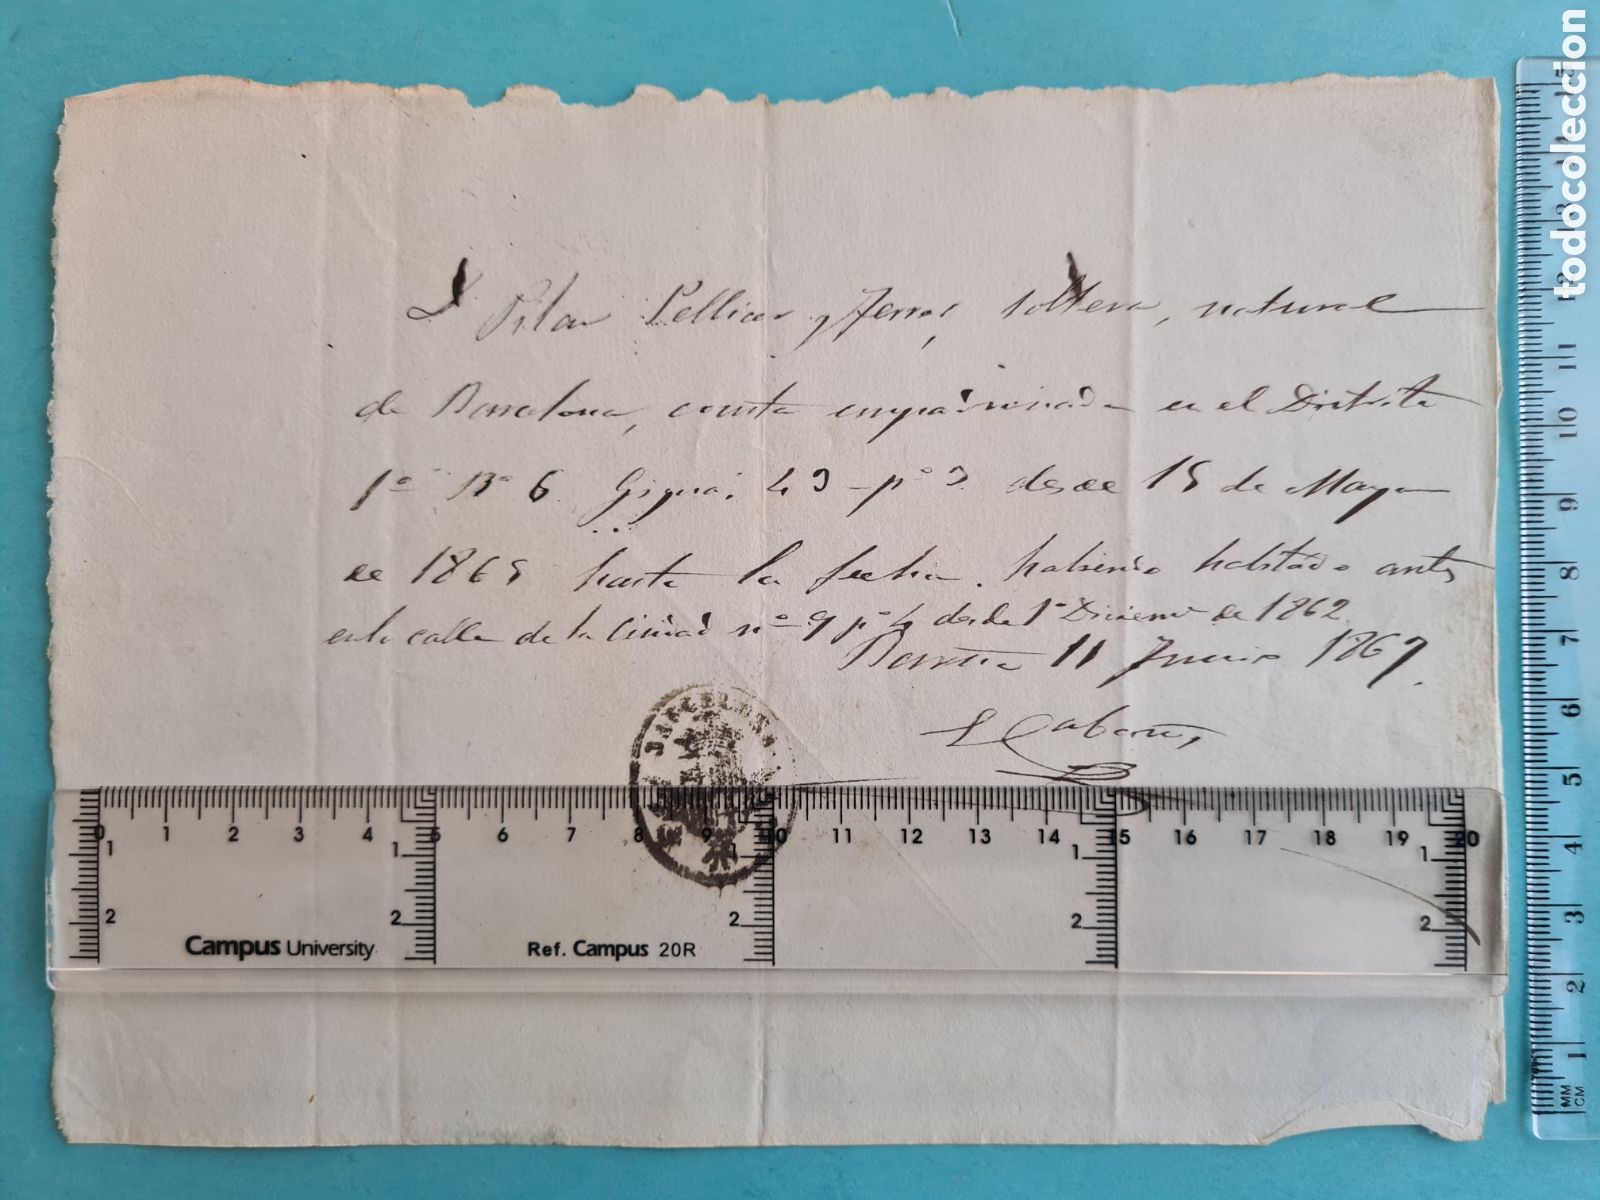 D.ª Pilar Pellicer y Ferrer, soltera, natural
de Barcelona, consta empadronada en el Distrito
1º Bº 6 Gignás 43 pº 3 desde 15 de Mayo
de 1865 hasta la fecha, habiendo habitado antes
en la calle de la Ciudad nº 9 pº 4 desde 1º Diciembre de 1862
Barna 11 Junio 1867.
BARCELONA
0 1 2 3 4 5 6 7 8 9 10 11 12 13 14 15 16 17 18 19 20
1 1 1 1 1
2 2 2 2 2
Campus University
Ref. Campus 20R
todocoleccion
15 14 13 12 11 10 9 8 7 6 5 4 3 2 1
MM
CM